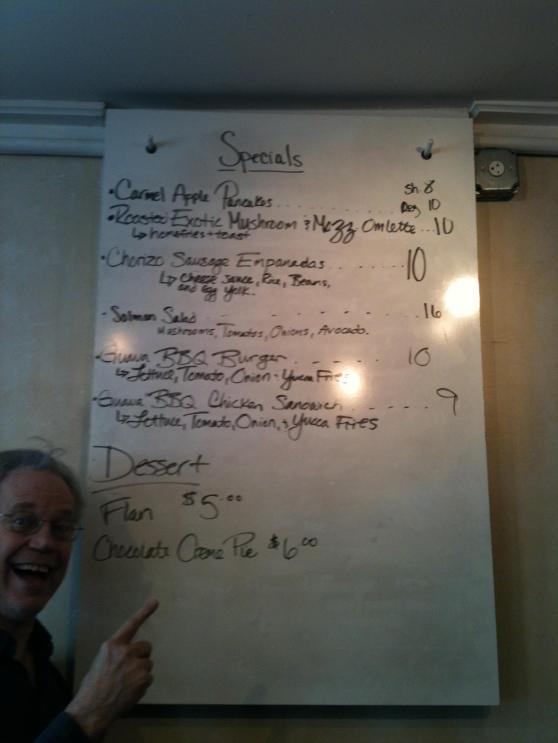 Specials
• Carmel Apple Pancakes . . . . . . . . Sh. 8
Reg 10
• Roasted Exotic Mushroom & Mozz Omlette . . . 10
↳ homefries + toast
• Chorizo Sausage Empanadas . . . . . . 10
↳ Cheese Sauce, Rice, Beans,
and egg yolk.
• Salmon Salad - - - - - - - - 16
Mushrooms, Tomatoes, Onions, Avocado.
• Guava BBQ Burger - - - - - 10
↳ Lettuce, Tomato, Onion - Yucca Fries
• Guava BBQ Chicken Sandwich . . . . . . 9
↳ Lettuce, Tomato, Onion, & Yucca Fries
Dessert
Flan $5.00
Chocolate Creme Pie $6.00